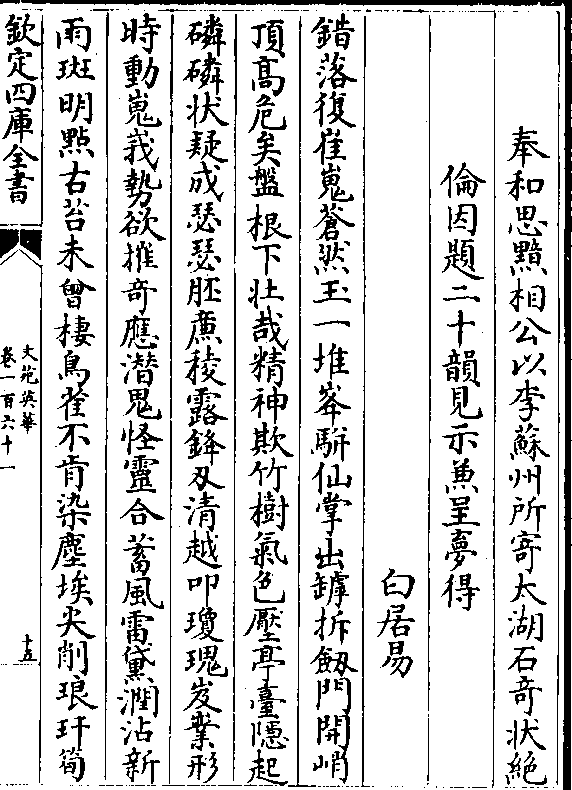 奉和思黯相公以李蘇州所寄太湖石奇狀絶
倫因題二十韻見示兼呈夢得
白居易
錯落復崔嵬蒼然玉一堆峯駢仙掌出罅拆劔門開峭
頂髙危矣盤根下壮哉精神欺竹樹氣色壓亭臺隠起
磷磷状疑成瑟瑟胚亷稜露鋒刃清越叩瓊瑰岌業形
時動嵬峩勢欲摧奇應潛鬼怪靈合蓄風雷黛潤沾新
雨斑明㸃古苔未曾棲鳥雀不肯染塵埃尖削琅玕筍
欽定四庫全書
文苑英華
卷一百六十一
十五